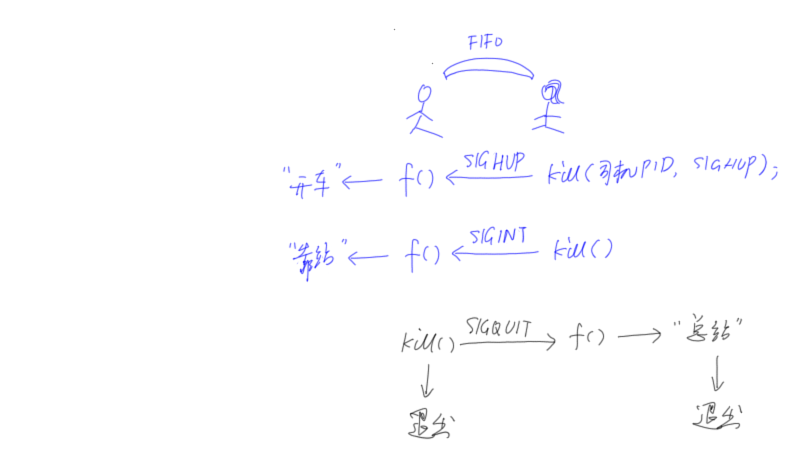 FIFO
"开车" ← f() ← SIGHUP kill(司机PID, SIGHUP);
"靠站" ← f() ← SIGINT kill()
kill() SIGQUIT → f() → "总站"
↓ ↓
退出 退出